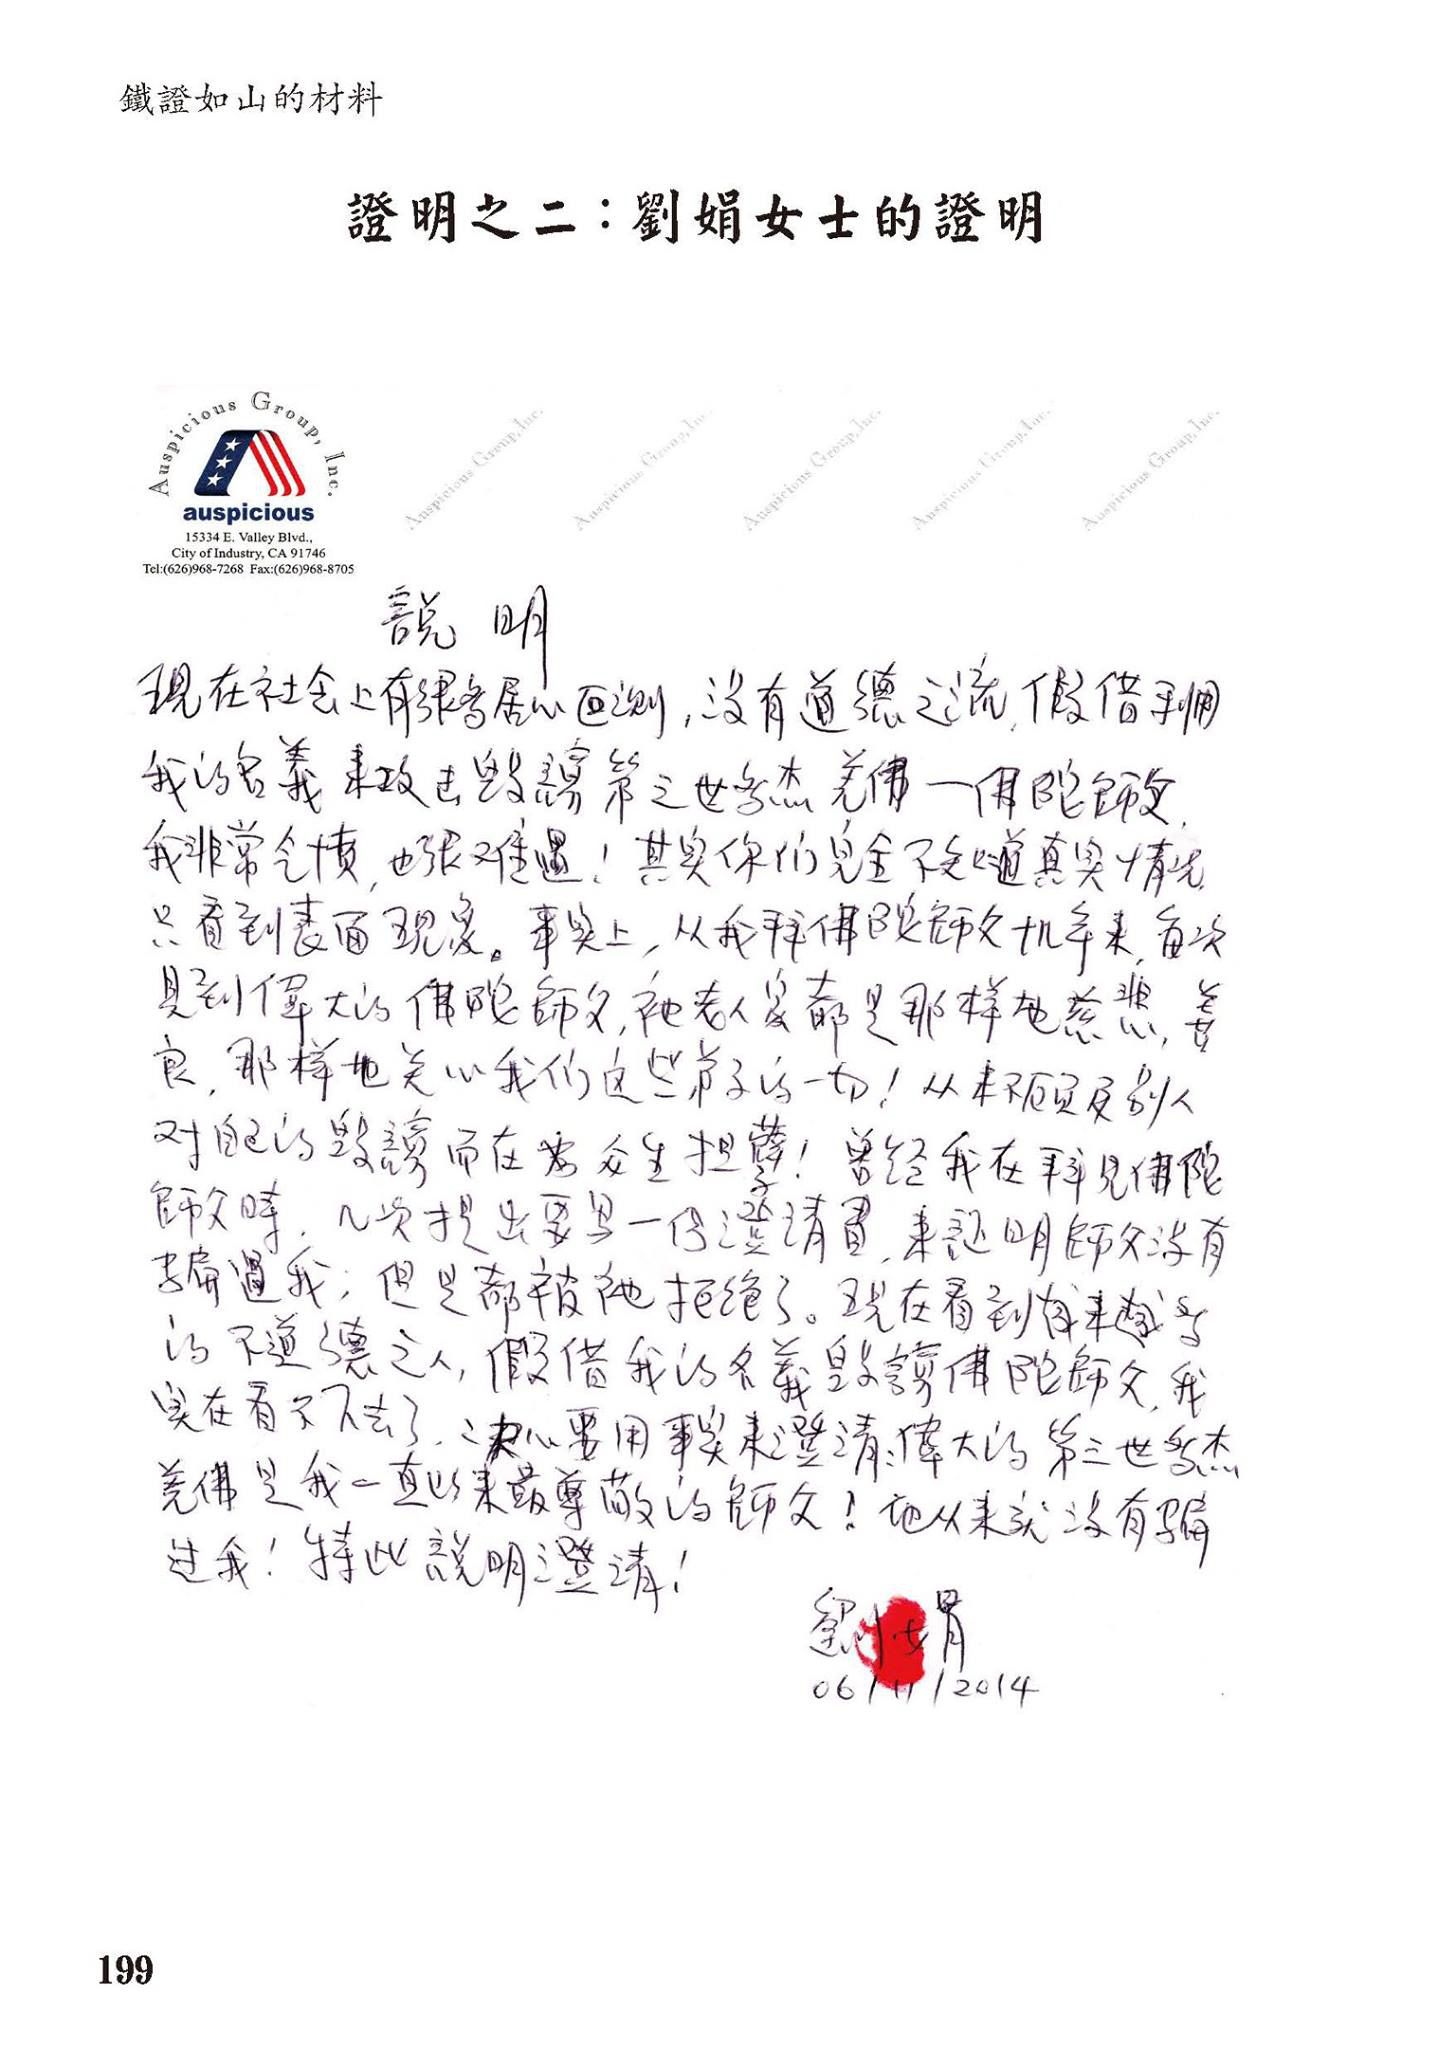 鐵證如山的材料
證明之二：劉娟女士的證明
Auspicious Group, Inc.
Auspicious Group, Inc.
Auspicious Group, Inc.
Auspicious Group, Inc.
Auspicious Group, Inc.
Auspicious Group, Inc.
auspicious
15334 E. Valley Blvd.,
City of Industry, CA 91746
Tel:(626)968-7268 Fax:(626)968-8705
說明
现在社会上有很多居心叵测，没有道德之流，假借利用
我的名義来攻击毁謗第三世多杰羌佛一佛陀師父，
我非常气愤，也很难過！其实你们完全不知道真实情况，
只看到表面现象。事实上，从我拜佛陀師父十几年来，每次
見到偉大的佛陀師父，祂老人家都是那样地慈悲，善
良，那样地关心我们这些弟子的一切！从来不顾及别人
对自己的毁謗而在为众生担孽！曾经我在拜見佛陀
師父時，几次提出要写一份澄清書，来証明師父没有
骗過我；但是都被祂拒绝了。现在看到越来越多
的不道德之人，假借我的名義毁謗佛陀師父，我
实在看不下去了，决心要用事实来澄清：偉大的第三世多杰
羌佛是我一直以来最尊敬的師父！祂从来就没有骗
过我！特此說明澄清！
劉娟
06/11/2014
199